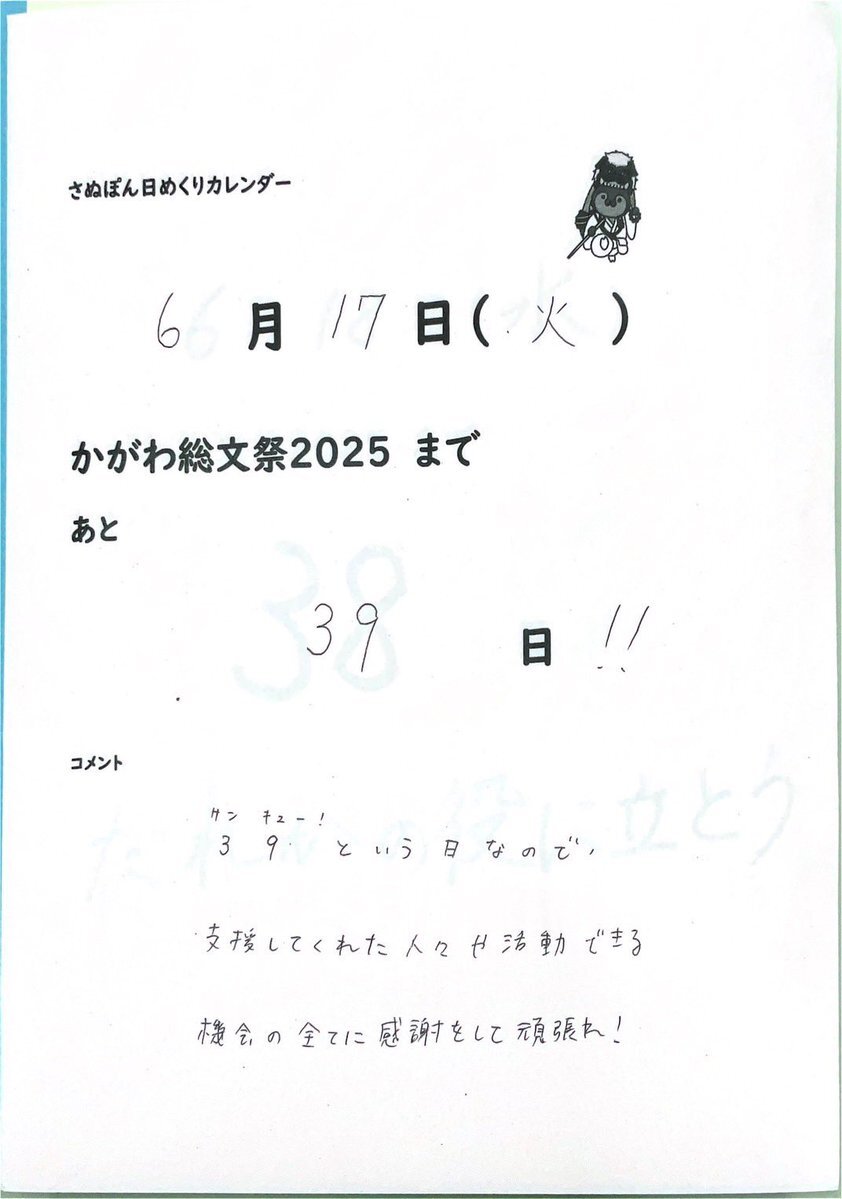 さぬぽん日めくりカレンダー
6月17日(火)
かがわ総文祭2025 まで
あと
39日!!
コメント
サンキュー!
39という日なので、
支援してくれた人々や活動できる
機会の全てに感謝をして頑張れ!
38
だれかの役に立とう